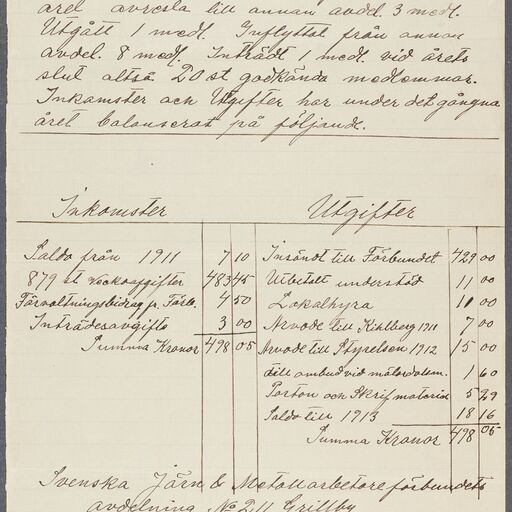 året avresta till annan avdel. 3 medl.
Utgått 1 medl. Inflyttat från annan
avdel. 8 medl. Inträdt 1 medl. vid årets
slut altså 20 st godkända medlemmar.
Inkomster och Utgifter har under det gångna
året balanserat på följande.
Inkomster Utgifter
Saldo från 1911 7 10 Insändt till Förbundet 429 00
879 st veckoafgifter 483 45 Utbetalt understöd 11 00
Förvaltningsbidrag fr Förb. 4 50 Lokalhyra 11 00
Inträdesavgifts 3 00 Arvode till Kihlberg 1911 7 00
Summa Kronor 498 05 Arvode till Styrelsen 1912 15 00
till ombud vid 1 60
Porton och Skrifmaterial 5 29
Saldo till 1913 18 16
Summa Kronor 498 05
Svenska Järn & Metallarbetareförbundets
avdelning No 211 Grillby